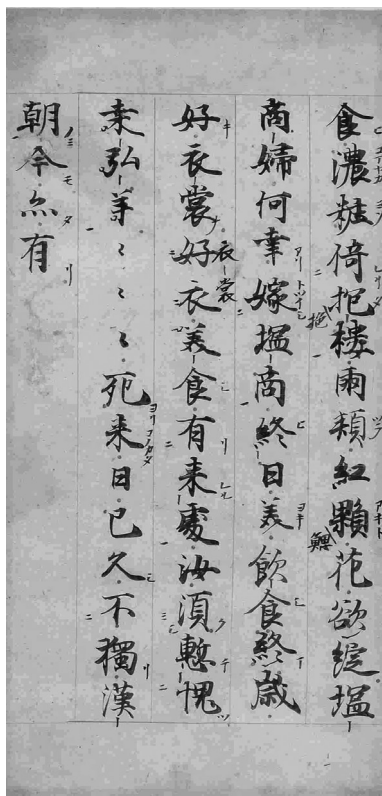 食濃粧倚拕樓兩頬紅顆花欲綻塩
商婦何幸嫁塩商終日美飲食終歳
好衣裳好衣美食有来處汝須慙愧
衣裳
桒弘羊〻〻〻死来日已久不獨漢
朝今亦有